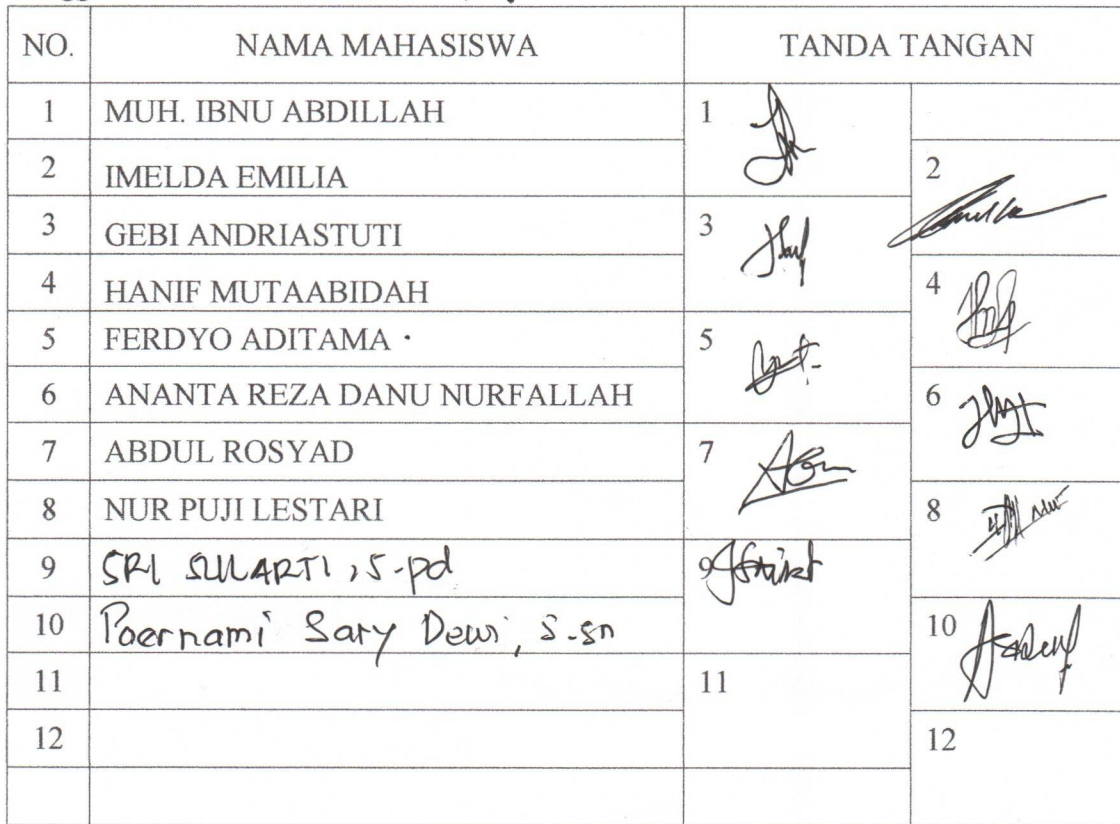 NO. NAMA MAHASISWA TANDA TANGAN
1 MUH. IBNU ABDILLAH 1
2 IMELDA EMILIA 2
3 GEBI ANDRIASTUTI 3
4 HANIF MUTAABIDAH 4
5 FERDYO ADITAMA 5
6 ANANTA REZA DANU NURFALLAH 6
7 ABDUL ROSYAD 7
8 NUR PUJI LESTARI 8
9 SRI SULARTI, S.pd 9
10 Poernami Sary Dewi, S.sn 10
11 11
12 12